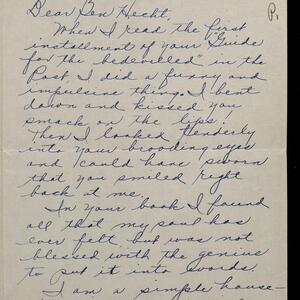 P1
Dear Ben Hecht,
When I read the first
installment of your "Guide
for the bedeviled" in the
Post I did a funny and
impulsive thing. I bent
down and kissed you
smack on the lips!
Then I looked tenderly
into your brooding eyes
and could have sworn
that you smiled right
back at me.
In your book I found
all that my soul has
ever felt but was not
blessed with the genius
to put it into words.
I am a simple house-